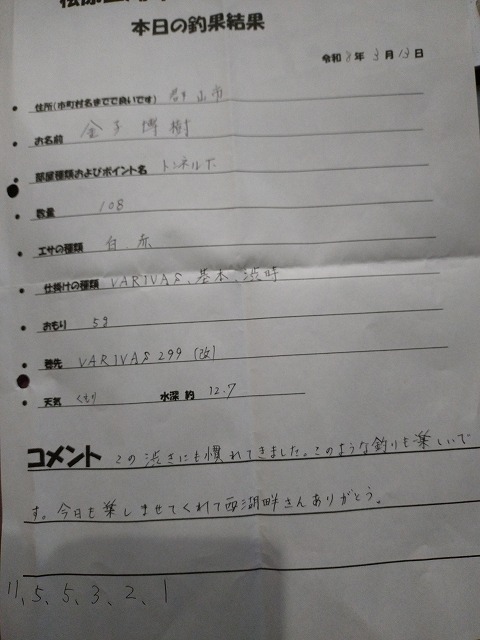 本日の釣果結果
令和8年3月13日
住所(市町村名までで良いです) 郡山市
お名前 金子 博樹
部屋種類およびポイント名 トンネル下
数量 108
エサの種類 白、赤
仕掛けの種類 VARIVAS、基本、渋時
おもり 5g
穂先 VARIVAS 299 (改)
天気 くもり 水深 約 12.7
コメント この渋さにも慣れてきました。このような釣りも楽しいで
す。今日も楽しませてくれて西湖畔さんありがとう。
11、5、5、3、2、1